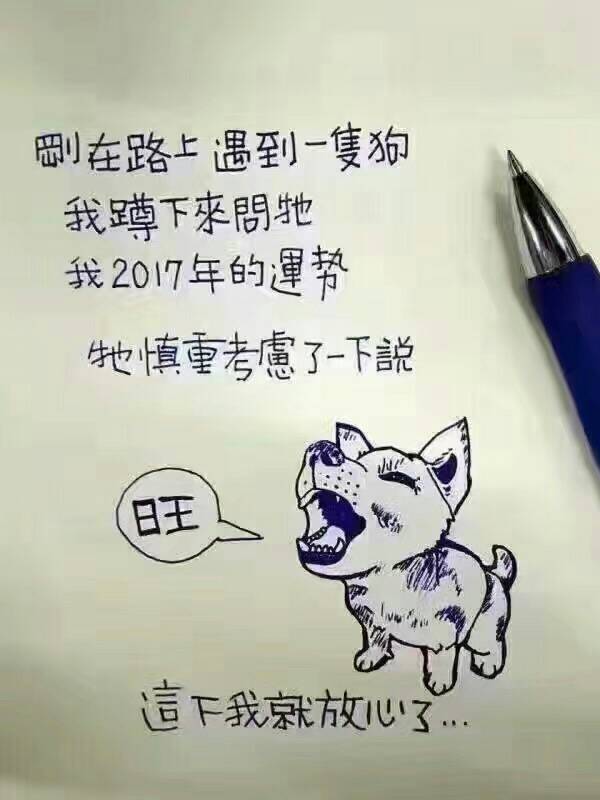 剛在路上遇到一隻狗
我蹲下來問牠
我2017年的運勢
牠慎重考慮了一下說
旺
這下我就放心了...